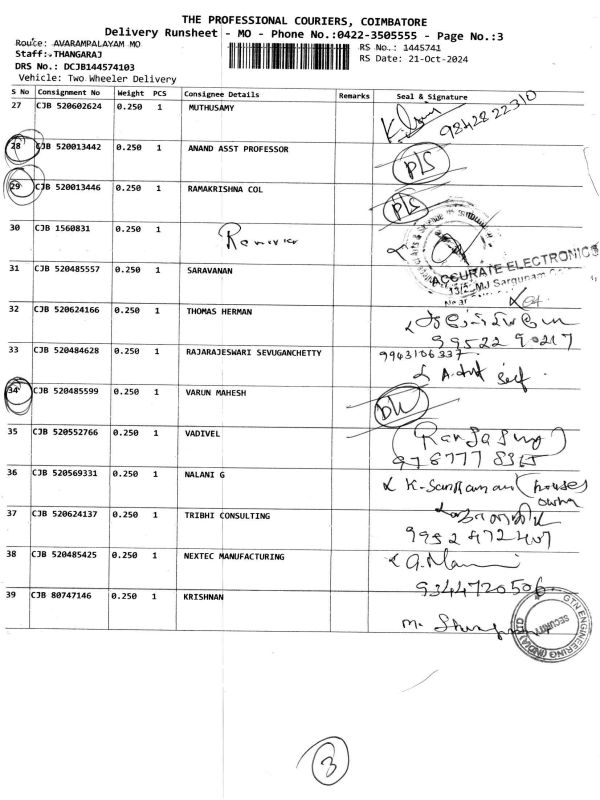 THE PROFESSIONAL COURIERS, COIMBATORE
Delivery Runsheet - MO - Phone No.:0422-3505555 - Page No.:3
Route: AVARAMPALAYAM MO
RS No.: 1445741
Staff:- THANGARAJ
RS Date: 21-Oct-2024
DRS No.: DCJB144574103
Vehicle: Two Wheeler Delivery
S No Consignment No Weight PCS Consignee Details Remarks Seal & Signature
27 CJB 520602624 0.250 1 MUTHUSAMY
98428 22310
28 CJB 520013442 0.250 1 ANAND ASST PROFESSOR
29 CJB 520013446 0.250 1 RAMAKRISHNA COL
30 CJB 1560831 0.250 1
31 CJB 520485557 0.250 1 SARAVANAN
ACCURATE ELECTRONICS
32 CJB 520624166 0.250 1 THOMAS HERMAN
99522 90217
33 CJB 520484628 0.250 1 RAJARAJESWARI SEVUGANCHETTY
9943106337
Self
34 CJB 520485599 0.250 1 VARUN MAHESH
35 CJB 520552766 0.250 1 VADIVEL
36 CJB 520569331 0.250 1 NALANI G
37 CJB 520624137 0.250 1 TRIBHI CONSULTING
9952472407
38 CJB 520485425 0.250 1 NEXTEC MANUFACTURING
9344720506
39 CJB 80747146 0.250 1 KRISHNAN
GTN ENGINEERING (INDIA) LTD
SECURITY
3